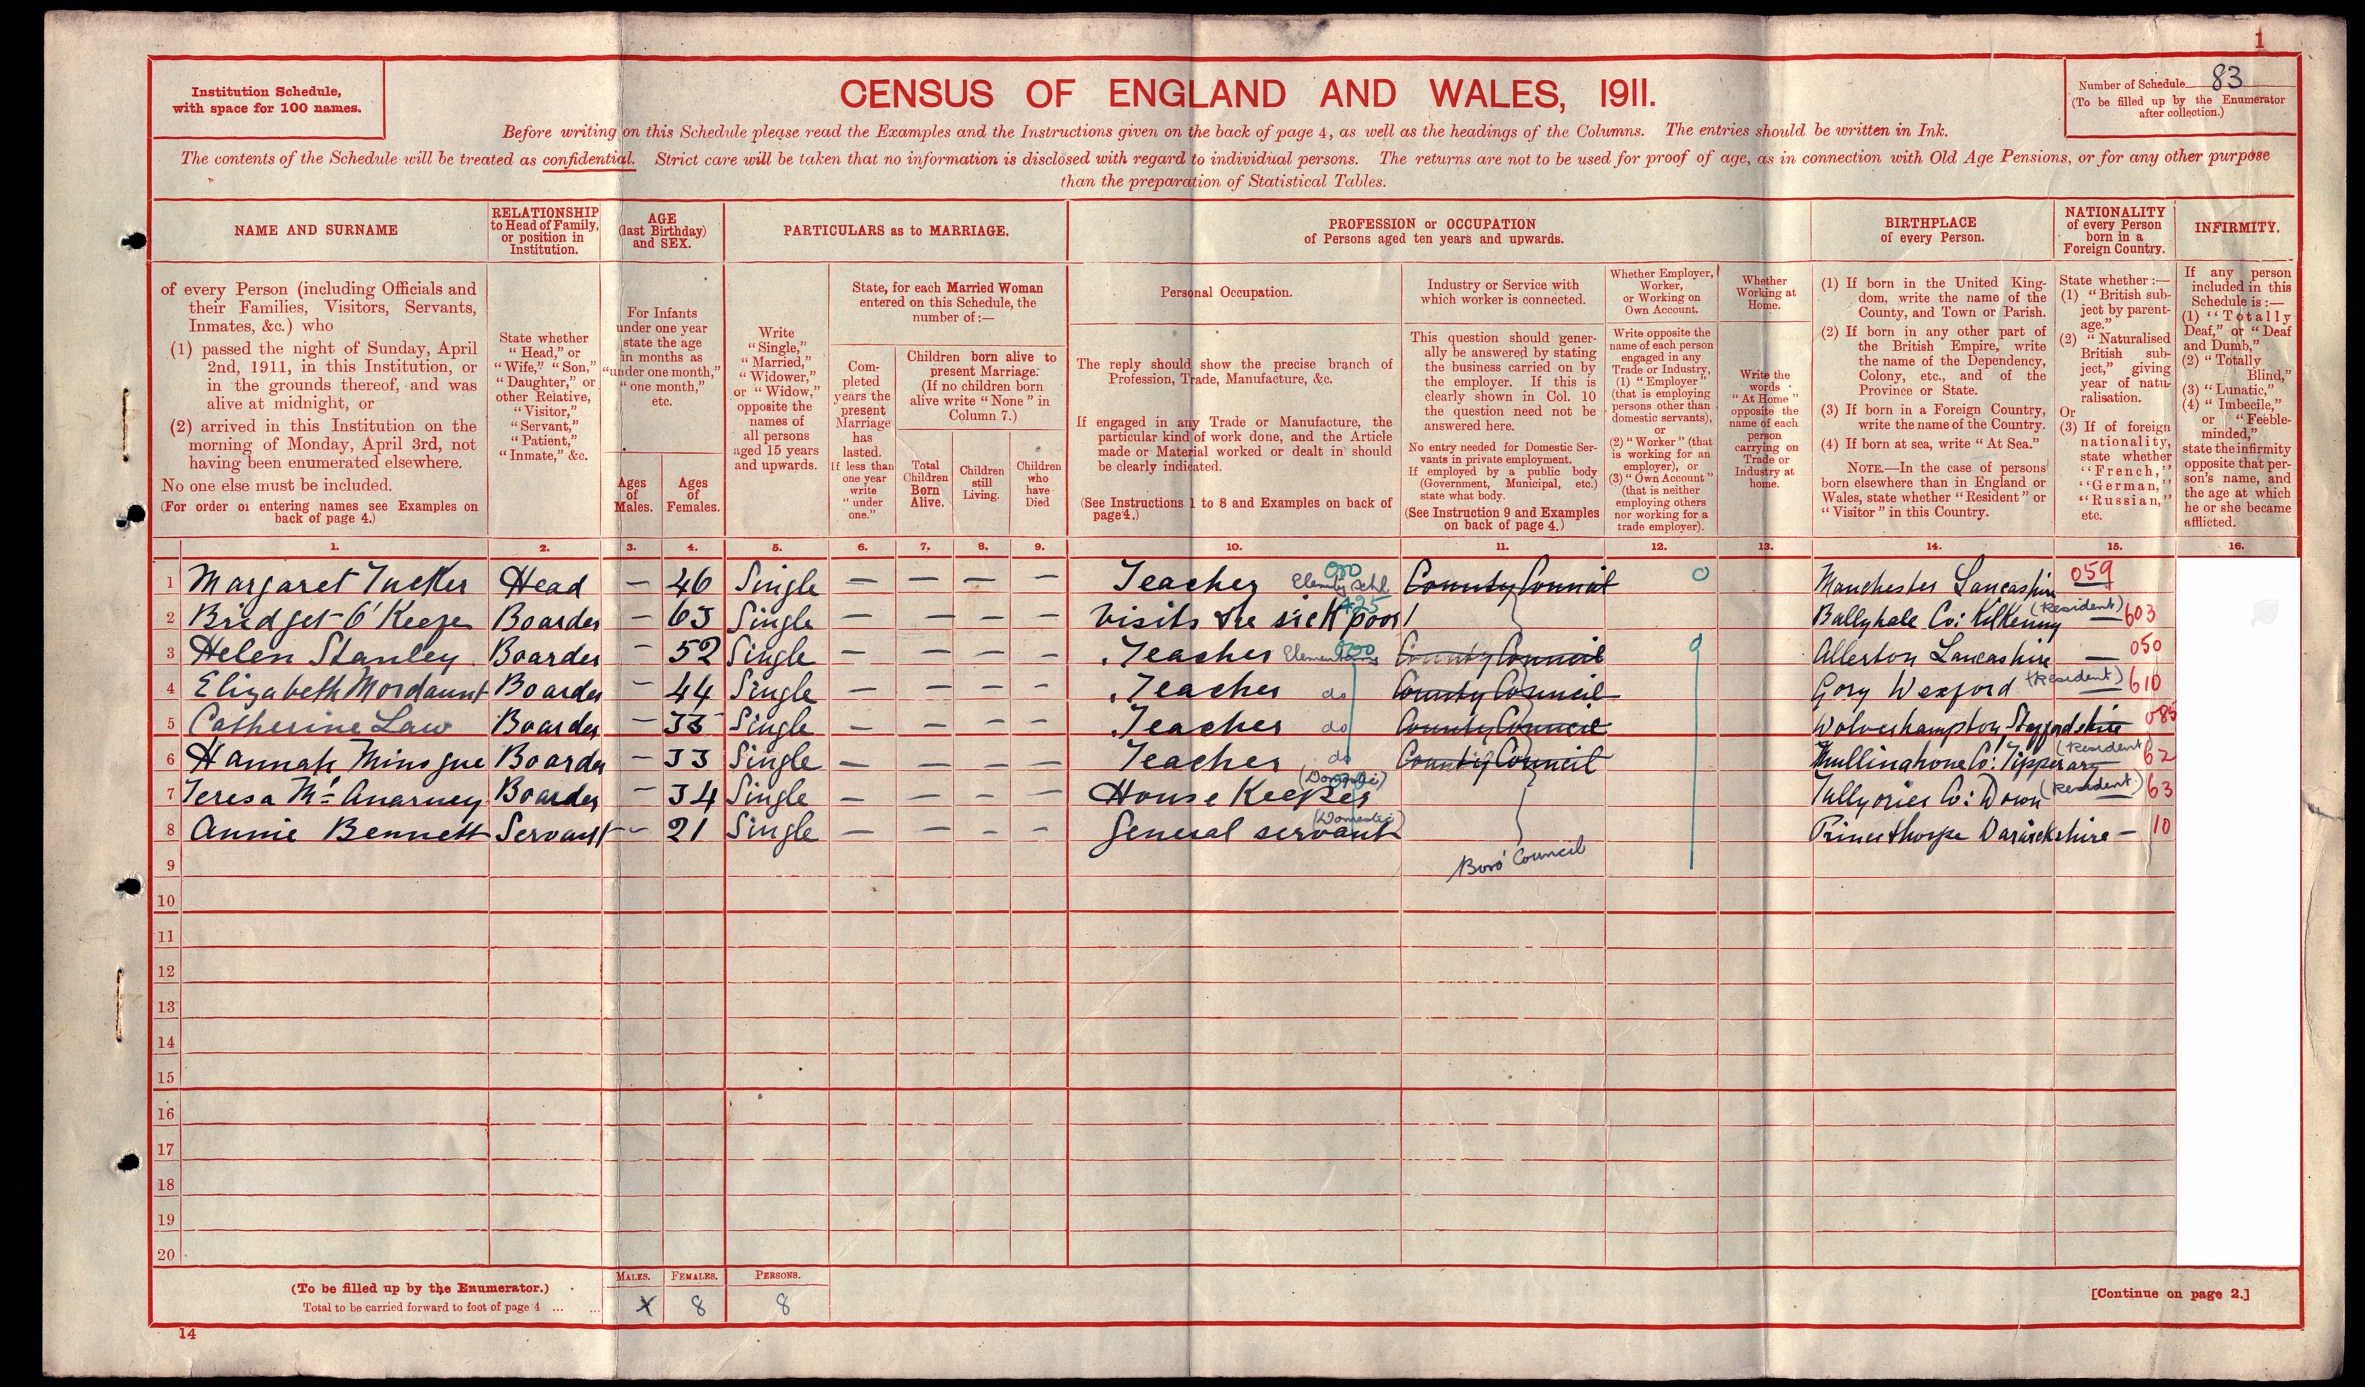 1
Institution Schedule,
with space for 100 names.
CENSUS OF ENGLAND AND WALES, 1911.
Number of Schedule 83
(To be filled up by the Enumerator
after collection.)
Before writing on this Schedule please read the Examples and the Instructions given on the back of page 4, as well as the headings of the Columns. The entries should be written in Ink.
The contents of the Schedule will be treated as confidential. Strict care will be taken that no information is disclosed with regard to individual persons. The returns are not to be used for proof of age, as in connection with Old Age Pensions, or for any other purpose
than the preparation of Statistical Tables.
NAME AND SURNAME
RELATIONSHIP
to Head of Family,
or position in
Institution.
AGE
(last Birthday)
and SEX.
PARTICULARS as to MARRIAGE.
PROFESSION or OCCUPATION
of Persons aged ten years and upwards.
BIRTHPLACE
of every Person.
NATIONALITY
of every Person
born in a
Foreign Country.
INFIRMITY.
of every Person (including Officials and
their Families, Visitors, Servants,
Inmates, &c.) who
(1) passed the night of Sunday, April
2nd, 1911, in this Institution, or
in the grounds thereof, and was
alive at midnight, or
(2) arrived in this Institution on the
morning of Monday, April 3rd, not
having been enumerated elsewhere.
No one else must be included.
(For order of entering names see Examples on
back of page 4.)
State whether
"Head," or
"Wife," "Son,"
"Daughter," or
other Relative,
"Visitor,"
"Servant,"
"Patient,"
"Inmate," &c.
For Infants
under one year
state the age
in months as
"under one month,"
"one month,"
etc.
Ages
of
Males.
Ages
of
Females.
Write
"Single,"
"Married,"
"Widower,"
or "Widow,"
opposite the
names of
all persons
aged 15 years
and upwards.
State, for each Married Woman
entered on this Schedule, the
number of:—
Com-
pleted
years the
present
Marriage
has
lasted.
If less than
one year
write
"under
one."
Children born alive to
present Marriage.
(If no children born
alive write "None" in
Column 7.)
Total
Children
Born
Alive.
Children
still
Living.
Children
who
have
Died
Personal Occupation.
The reply should show the precise branch of
Profession, Trade, Manufacture, &c.
If engaged in any Trade or Manufacture, the
particular kind of work done, and the Article
made or Material worked or dealt in should
be clearly indicated.
(See Instructions 1 to 8 and Examples on back of
page 4.)
Industry or Service with
which worker is connected.
This question should gener-
ally be answered by stating
the business carried on by
the employer. If this is
clearly shown in Col. 10
the question need not be
answered here.
No entry needed for Domestic Ser-
vants in private employment.
If employed by a public body
(Government, Municipal, etc.)
state what body.
(See Instruction 9 and Examples
on back of page 4.)
Whether Employer,
Worker,
or Working on
Own Account.
Write opposite the
name of each person
engaged in any
Trade or Industry,
(1) "Employer"
(that is employing
persons other than
domestic servants),
or
(2) "Worker" (that
is working for an
employer), or
(3) "Own Account"
(that is neither
employing others
nor working for a
trade employer).
Whether
Working at
Home.
Write the
words
"At Home"
opposite the
name of each
person
carrying on
Trade or
Industry at
home.
(1) If born in the United King-
dom, write the name of the
County, and Town or Parish.
(2) If born in any other part of
the British Empire, write
the name of the Dependency,
Colony, etc., and of the
Province or State.
(3) If born in a Foreign Country,
write the name of the Country.
(4) If born at sea, write "At Sea."
NOTE.—In the case of persons
born elsewhere than in England or
Wales, state whether "Resident" or
"Visitor" in this Country.
State whether:—
(1) "British sub-
ject by parent-
age."
(2) "Naturalised
British sub-
ject," giving
year of natu-
ralisation.
Or
(3) If of foreign
nationality,
state whether
"French,"
"German,"
"Russian,"
etc.
If any person
included in this
Schedule is:—
(1) "Totally
Deaf," or "Deaf
and Dumb,"
(2) "Totally
Blind,"
(3) "Lunatic,"
(4) "Imbecile,"
or "Feeble-
minded,"
state the infirmity
opposite that per-
son's name, and
the age at which
he or she became
afflicted.
1. 2. 3. 4. 5. 6. 7. 8. 9. 10. 11. 12. 13. 14. 15. 16.
1 Margaret Tucker Head — 46 Single — — — — Teacher Elemty schl County Council 0 Manchester Lancashire 059
2 Bridget O'Keefe Boarder — 63 Single — — — — Visits the sick poor 425 Ballyhale Co: Kilkenny (Resident) — 603
3 Helen Stanley Boarder — 52 Single — — — — Teacher Elementary County Council 9 Allerton Lancashire — 050
4 Elizabeth Mordaunt Boarder — 44 Single — — — — Teacher do County Council Gory Wexford (Resident) — 610
5 Catherine Law Boarder — 33 Single — — — — Teacher do County Council Wolverhampton Staffordshire 085
6 Hannah Minogue Boarder — 33 Single — — — — Teacher do County Council Mullinahone Co: Tipperary (Resident) 62
7 Teresa McAnarney Boarder — 34 Single — — — — House Keeper (Domestic) Tullyories Co: Down (Resident) 63
8 Annie Bennett Servant — 21 Single — — — — General servant (Domestic) Princethorpe Warwickshire — 10
9 Boro' Council
10
11
12
13
14
15
16
17
18
19
20
(To be filled up by the Enumerator.)
Total to be carried forward to foot of page 4 ... ...
MALES. FEMALES. PERSONS.
X 8 8
[Continue on page 2.]
14